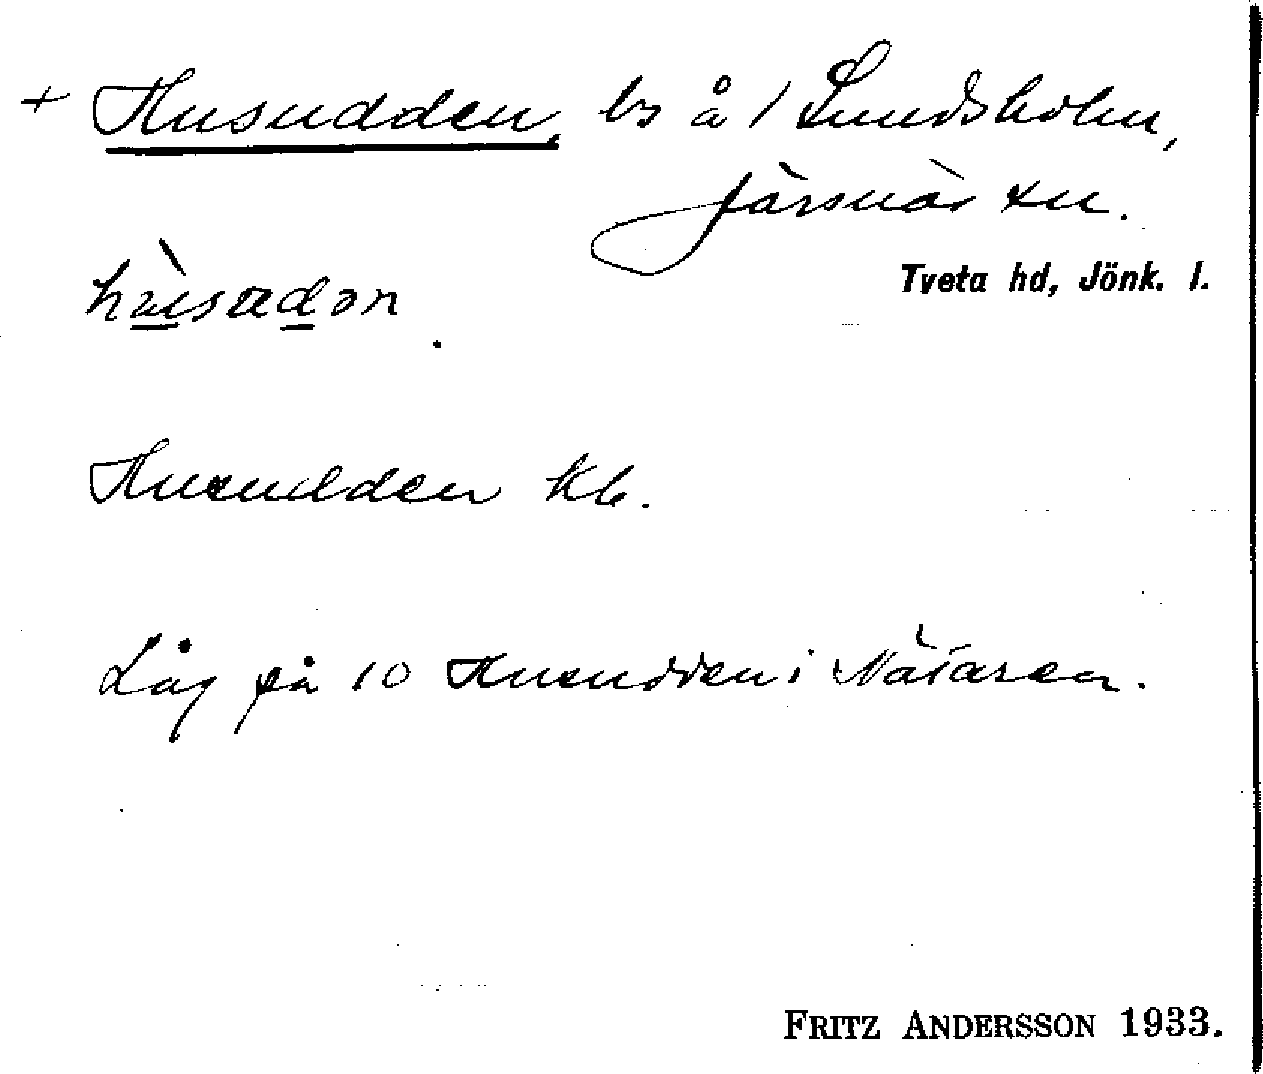 + Husudden, bs å 1 Lundsholm,
Järsnäs sn.
Tveta hd, Jönk. l.
Husudden kb.
Låg på 10 Husudden i Nätaren.
FRITZ ANDERSSON 1933.